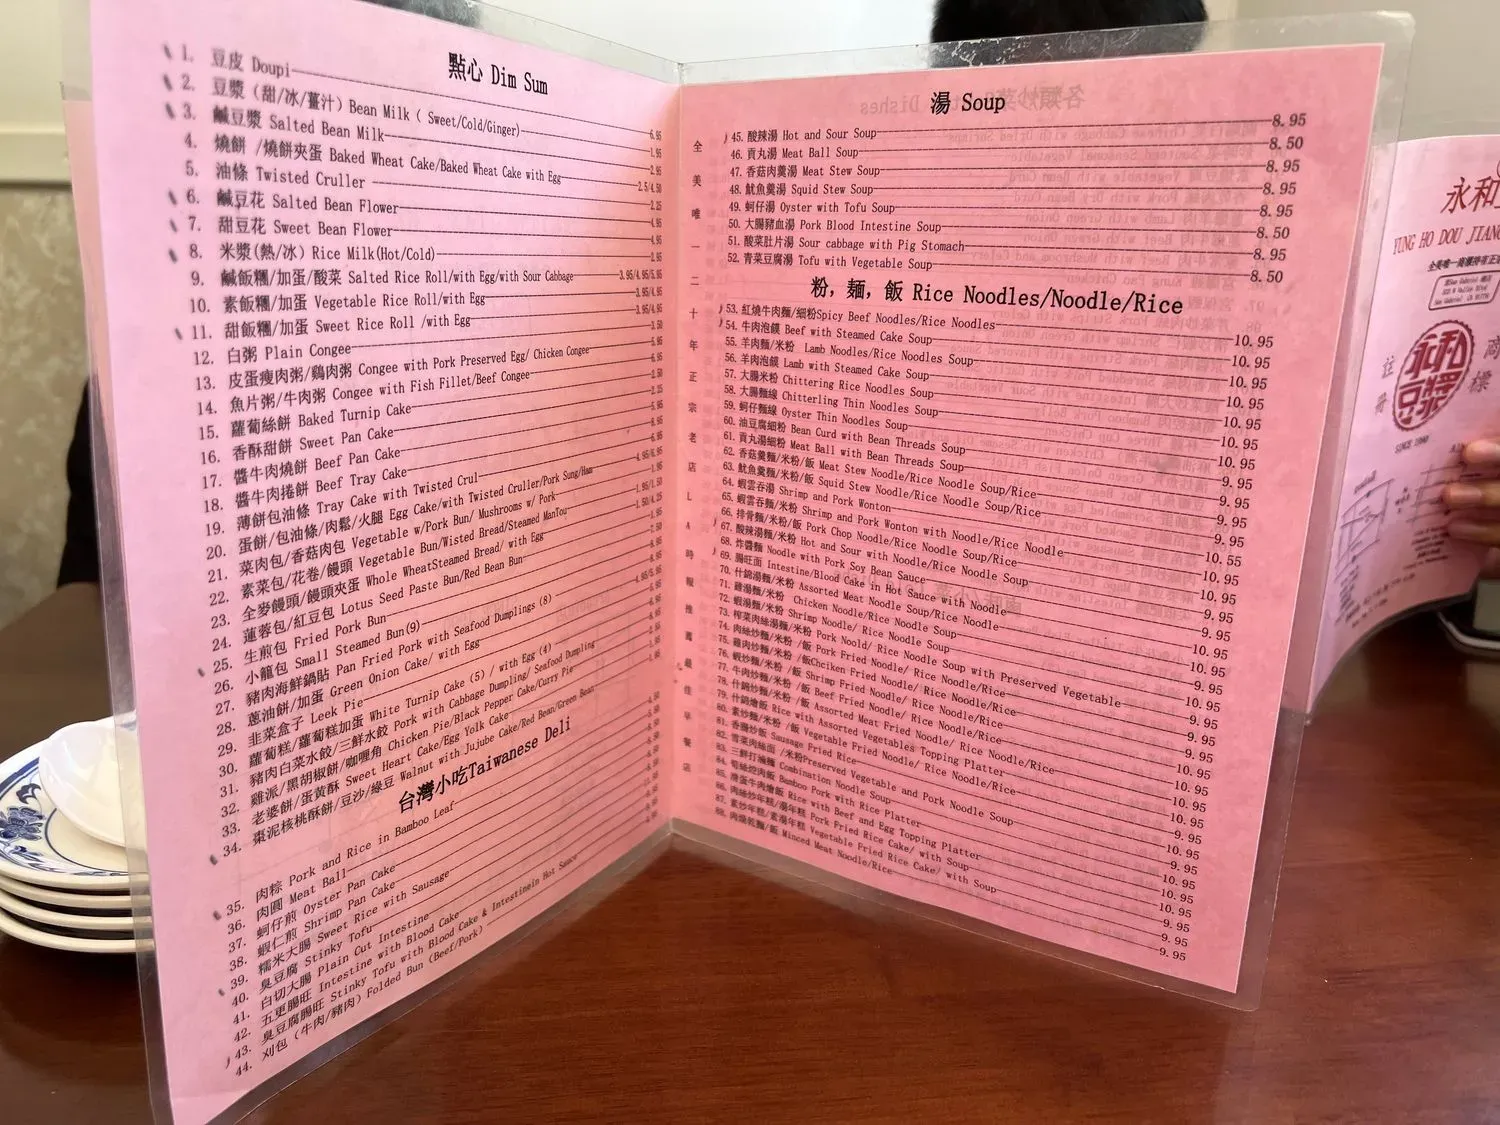 點心 Dim Sum
1. 豆皮 Doupi 6.95
2. 豆漿 (甜/冰/薑汁) Bean Milk ( Sweet/Cold/Ginger) 1.95
3. 鹹豆漿 Salted Bean Milk 2.95
4. 燒餅 /燒餅夾蛋 Baked Wheat Cake/Baked Wheat Cake with Egg 2.5/4.50
5. 油條 Twisted Cruller 2.25
6. 鹹豆花 Salted Bean Flower 4.95
7. 甜豆花 Sweet Bean Flower
8. 米漿(熱/冰) Rice Milk(Hot/Cold)
9. 鹹飯糰/加蛋/酸菜 Salted Rice Roll/with Egg/with Sour Cabbage 3.95/4.95/5.95
10. 素飯糰/加蛋 Vegetable Rice Roll/with Egg 3.95/4.95
11. 甜飯糰/加蛋 Sweet Rice Roll /with Egg 3.95/4.95
12. 白粥 Plain Congee
13. 皮蛋瘦肉粥/鷄肉粥 Congee with Pork Preserved Egg/ Chicken Congee
14. 魚片粥/牛肉粥 Congee with Fish Fillet/Beef Congee
15. 蘿蔔絲餅 Baked Turnip Cake
16. 香酥甜餅 Sweet Pan Cake
17. 醬牛肉燒餅 Beef Pan Cake
18. 醬牛肉捲餅 Beef Tray Cake
19. 薄餅包油條 Tray Cake with Twisted Crul
20. 蛋餅/包油條/肉鬆/火腿 Egg Cake/with Twisted Cruller/Pork Sung/Ham
21. 菜肉包/香菇肉包 Vegetable w/Pork Bun/ Mushrooms w/ Pork
22. 素菜包/花卷/饅頭 Vegetable Bun/Wisted Bread/Steamed ManTou
23. 全麥饅頭/饅頭夾蛋 Whole WheatSteamed Bread/ with Egg
24. 蓮蓉包/紅豆包 Lotus Seed Paste Bun/Red Bean Bun
25. 生煎包 Fried Pork Bun
26. 小籠包 Small Steamed Bun(9)
27. 豬肉海鮮鍋貼 Pan Fried Pork with Seafood Dumplings (8)
28. 蔥油餅/加蛋 Green Onion Cake/ with Egg
29. 韭菜盒子 Leek Pie
30. 蘿蔔糕/蘿蔔糕加蛋 White Turnip Cake (5) / with Egg (4)
31. 豬肉白菜水餃/三鮮水餃 Pork with Cabbage Dumpling/ Seafood Dumpling
32. 雞派/黑胡椒餅/咖喱角 Chicken Pie/Black Pepper Cake/Curry Pie
33. 老婆餅/蛋黃酥 Sweet Heart Cake/Egg Yolk Cake
34. 棗泥核桃酥餅/豆沙/綠豆 Walnut with Jujube Cake/Red Bean/Green Bean
台灣小吃Taiwanese Deli
35. 肉粽 Pork and Rice in Bamboo Leaf
36. 肉圓 Meat Ball
37. 蚵仔煎 Oyster Pan Cake
38. 蝦仁煎 Shrimp Pan Cake
39. 糯米大腸 Sweet Rice with Sausage
40. 臭豆腐 Stinky Tofu
41. 白切大腸 Plain Cut Intestine
42. 五更腸旺 Intestine with Blood Cake
43. 臭豆腐腸旺 Stinky Tofu with Blood Cake & Intestinein Hot Sauce
44. 刈包 (牛肉/豬肉) Folded Bun (Beef/Pork)
全美唯一二十年正宗老店LA時報推薦最佳早餐店
湯 Soup
45. 酸辣湯 Hot and Sour Soup 8.95
46. 貢丸湯 Meat Ball Soup 8.50
47. 香菇肉羹湯 Meat Stew Soup 8.95
48. 魷魚羹湯 Squid Stew Soup 8.95
49. 蚵仔湯 Oyster with Tofu Soup 8.95
50. 大腸豬血湯 Pork Blood Intestine Soup 8.50
51. 酸菜肚片湯 Sour cabbage with Pig Stomach 8.95
52. 青菜豆腐湯 Tofu with Vegetable Soup 8.50
粉, 麵, 飯 Rice Noodles/Noodle/Rice
53. 紅燒牛肉麵/細粉Spicy Beef Noodles/Rice Noodles 10.95
54. 牛肉泡饃 Beef with Steamed Cake Soup 10.95
55. 羊肉麵/米粉 Lamb Noodles/Rice Noodles Soup 10.95
56. 羊肉泡饃 Lamb with Steamed Cake Soup 10.95
57. 大腸米粉 Chittering Rice Noodles Soup 10.95
58. 大腸麵線 Chitterling Thin Noodles Soup 10.95
59. 蚵仔麵線 Oyster Thin Noodles Soup 10.95
60. 油豆腐細粉 Bean Curd with Bean Threads Soup 9.95
61. 貢丸湯細粉 Meat Ball with Bean Threads Soup 9.95
62. 香菇羹麵/米粉/飯 Meat Stew Noodle/Rice Noodle Soup/Rice 9.95
63. 魷魚羹麵/米粉/飯 Squid Stew Noodle/Rice Noodle Soup/Rice 9.95
64. 蝦雲吞湯 Shrimp and Pork Wonton
65. 蝦雲吞麵/米粉 Shrimp and Pork Wonton with Noodle/Rice Noodle 10.55
66. 排骨麵/米粉/飯 Pork Chop Noodle/Rice Noodle Soup/Rice 10.95
67. 酸辣湯麵/米粉 Hot and Sour with Noodle/Rice Noodle Soup
68. 炸醬麵 Noodle with Pork Soy Bean Sauce
69. 腸旺面 Intestine/Blood Cake in Hot Sauce with Noodle
70. 什錦湯麵/米粉 Assorted Meat Noodle Soup/Rice Noodle
71. 雞湯麵/米粉 Chicken Noodle/Rice Noodle Soup
72. 蝦湯麵/米粉 Shrimp Noodle/ Rice Noodle Soup
73. 榨菜肉絲湯麵/米粉 Pork Noold/ Rice Noodle Soup with Preserved Vegetable
74. 肉絲炒麵/米粉 /飯 Pork Fried Noodle/ Rice Noodle/Rice
75. 雞肉炒麵/米粉 /飯Chciken Fried Noodle/ Rice Noodle/Rice
76. 蝦炒麵/米粉 /飯 Shrimp Fried Noodle/ Rice Noodle/Rice
77. 牛肉炒麵/米粉 /飯 Beef Fried Noodle/ Rice Noodle/Rice
78. 什錦炒麵/米粉 /飯 Assorted Meat Fried Noodle/ Rice Noodle/Rice
79. 什錦燴飯 Rice with Assorted Vegetables Topping Platter
80. 素炒麵/米粉 /飯 Vegetable Fried Noodle/ Rice Noodle/Rice
81. 香腸炒飯 Sausage Fried Rice
82. 雪菜肉絲面 /米粉Preserved Vegetable and Pork Noodle Soup
83. 三鮮打滷麵 Combination Noodle Soup
84. 筍絲焢肉飯 Bamboo Pork with Rice Platter
85. 滑蛋牛肉燴飯 Rice with Beef and Egg Topping Platter
86. 肉絲炒年糕/湯年糕 Pork Fried Rice Cake/ with Soup
87. 素炒年糕/素湯年糕 Vegetable Fried Rice Cake/ with Soup
88. 肉燥乾麵/飯 Minced Meat Noodle/Rice
永和
YUNG HO DOU JIANG
永和豆漿
註冊
商標
SINCE 1980